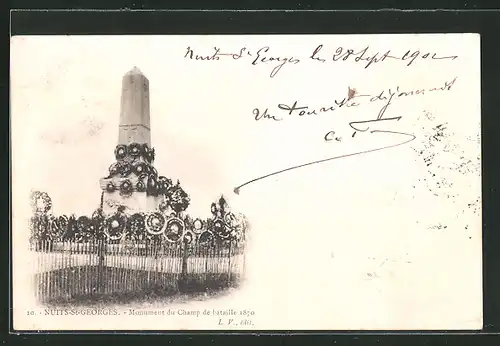 Nuits St Georges les 28 Sept 1902
Un touriste dijonnais
20. - NUITS-St-GEORGES. - Monument du Champ de bataille 1870
L. V., édit.